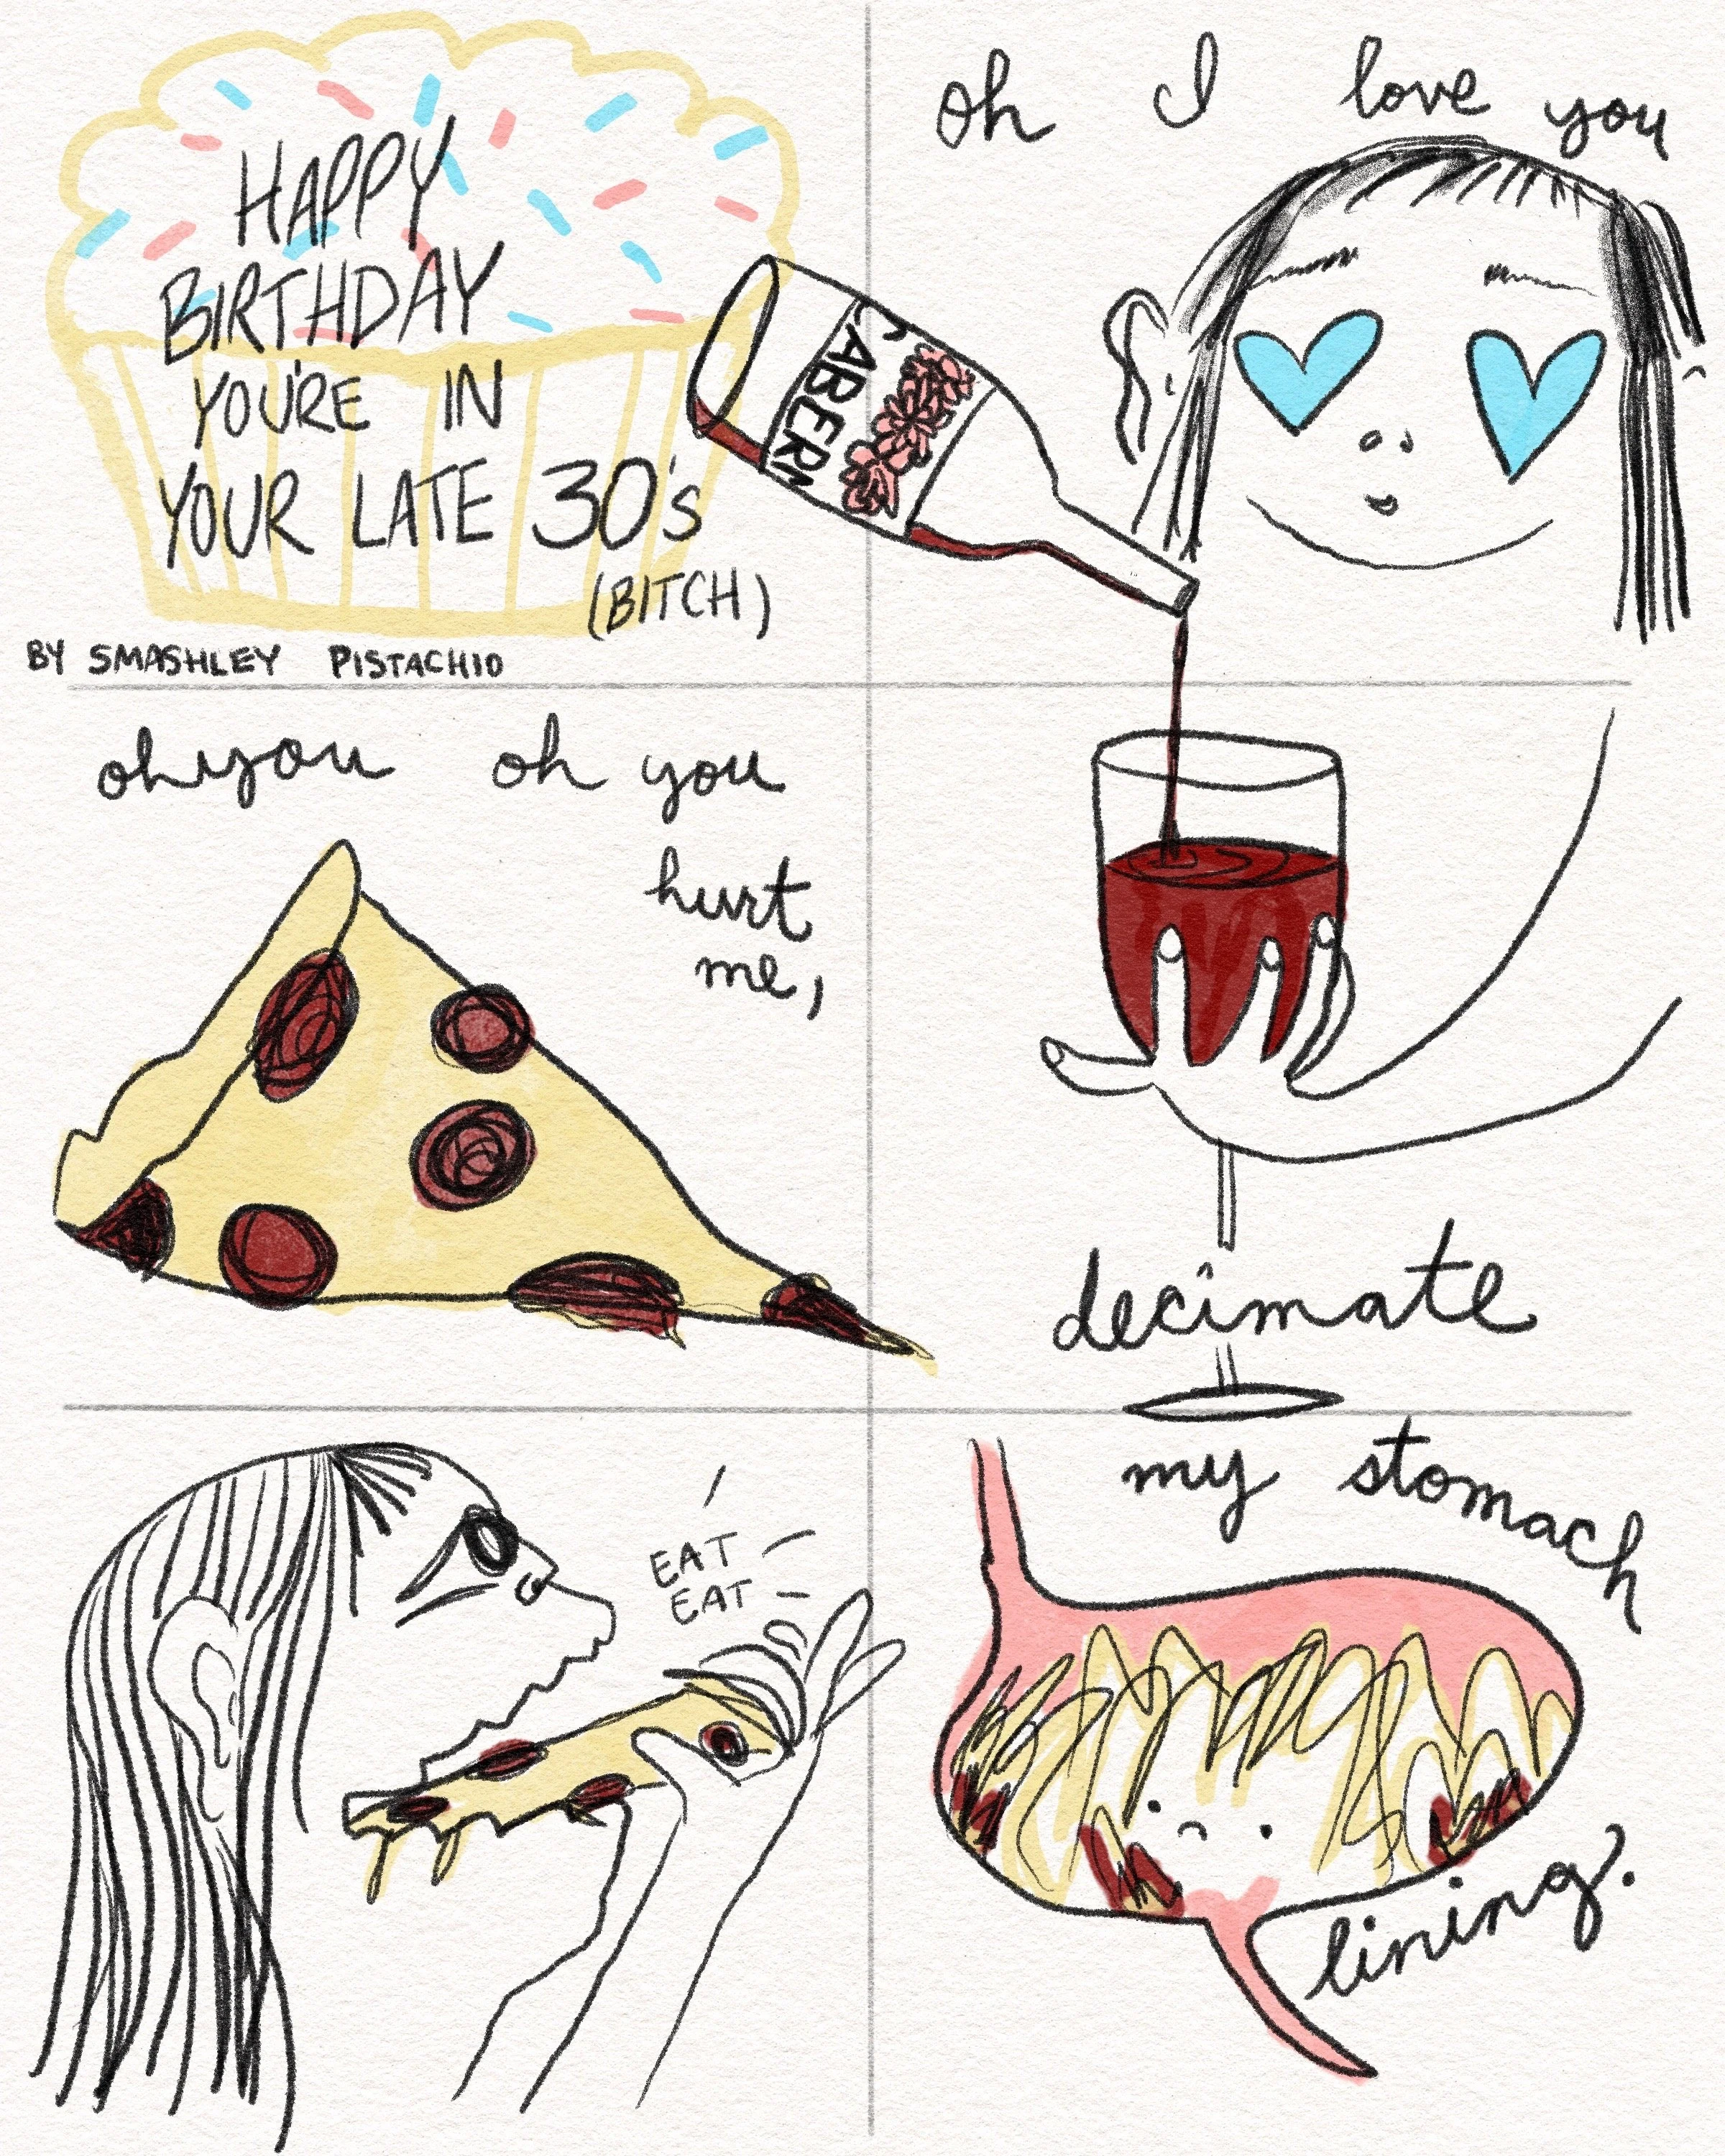 HAPPY
BIRTHDAY
YOU'RE IN
YOUR LATE 30's
(BITCH)
BY SMASHLEY PISTACHIO
oh I love you
CABERN
oh you oh you
hurt
me,
decimate
EAT
EAT
my stomach
lining.